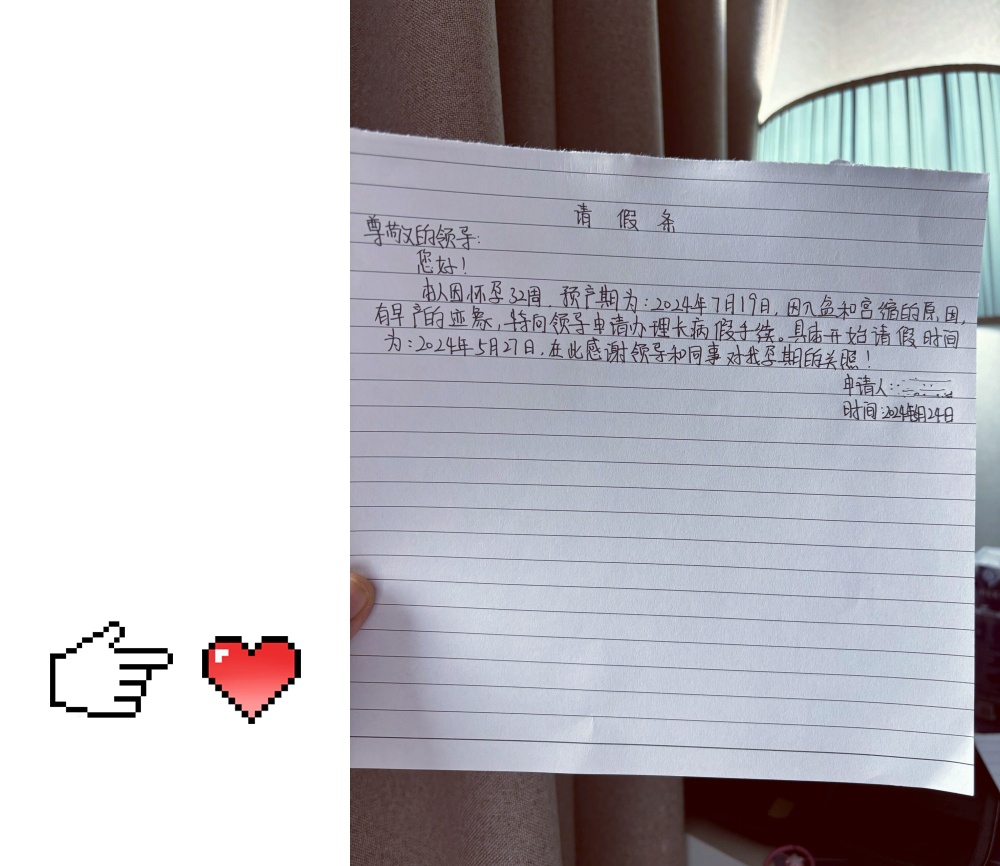 请 假 条
尊敬的领导:
您好!
本人因怀孕32周,预产期为:2024年7月19日,因入盆和宫缩的原因,
有早产的迹象,特向领导申请办理长病假手续。具体开始请假时间
为:2024年5月27日,在此感谢领导和同事对我孕期的关照!
申请人:
时间:2024年5月24日